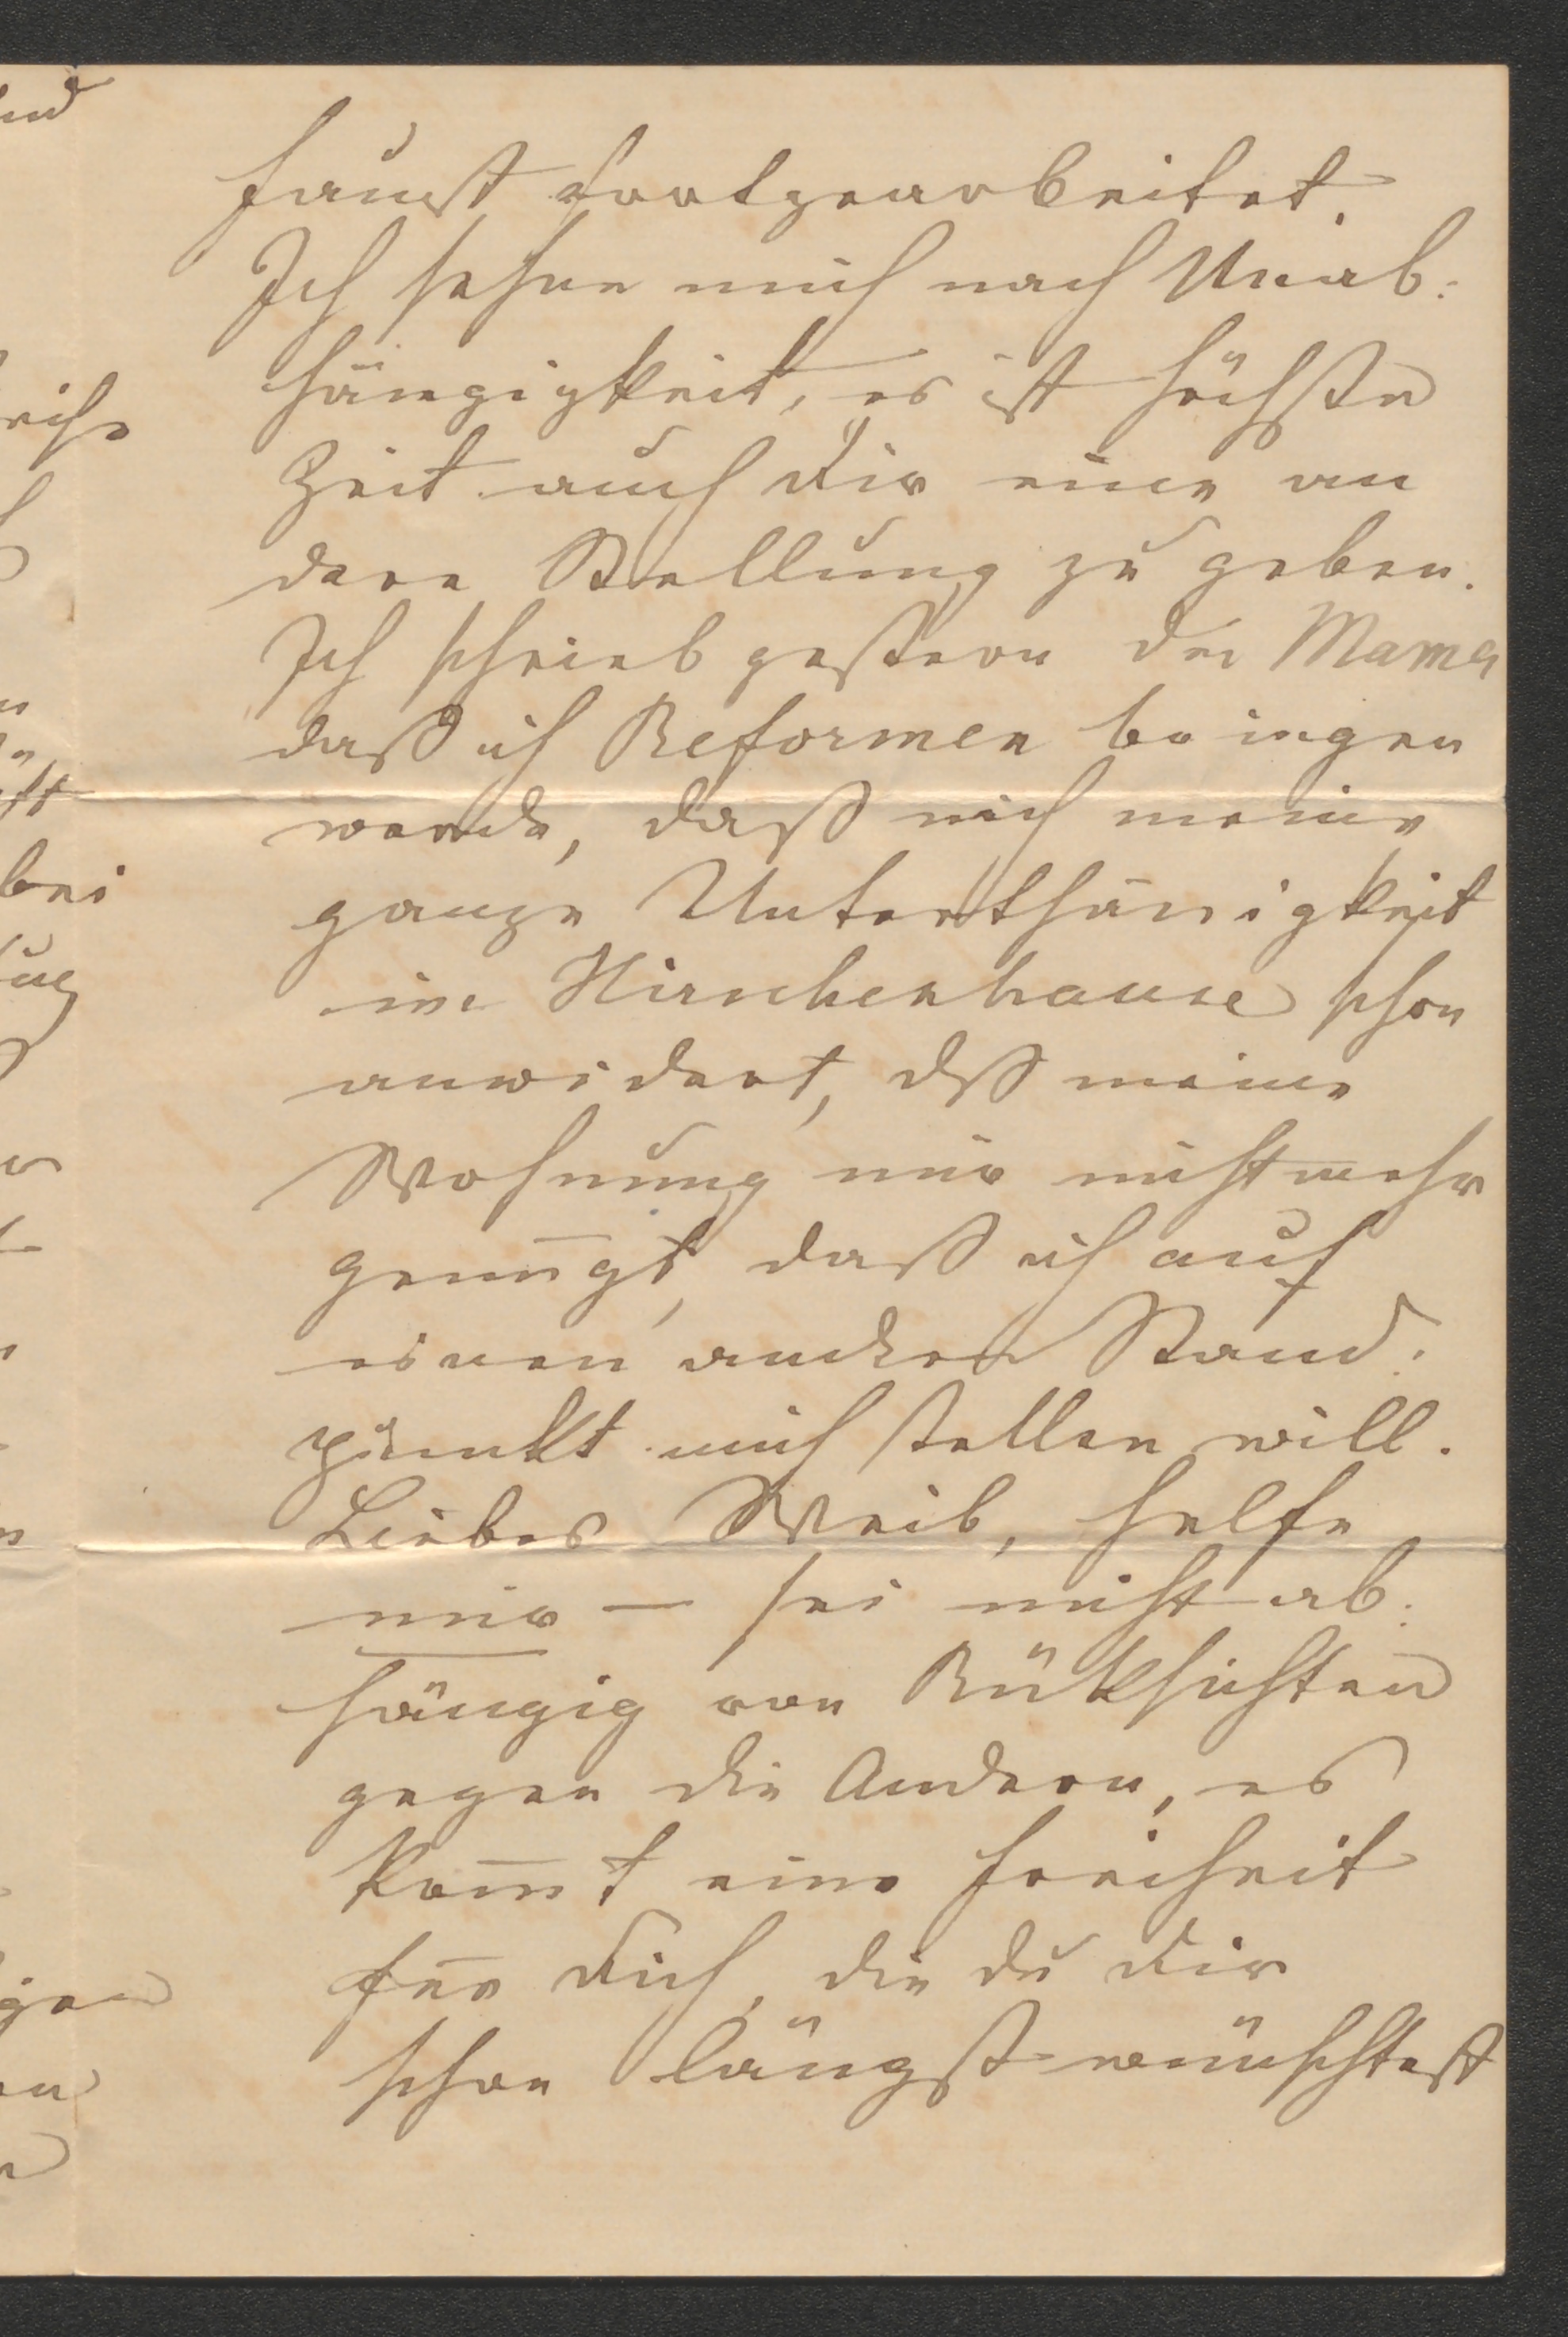 Faust fortgearbeitet.
Ich sehne mich nach Unab:
hängigkeit, es ist höchste
Zeit auch Dir eine an
dere Stellung zu geben.
Ich schrieb gestern der Mama
daß ich Reformen bringen
werde, daß mich meine
ganze Unterthänigkeit
im Hirschenhause schon
anwidert, dß meine
Wohnung mir nicht mehr
genügt, daß ich auf
einen andern Stand:
punkt mich stellen will.
Liebes Weib, helfe
mir — sei nicht ab:
hängig von Rüksichten
gegen die Andern, es
kom̅t eine Freiheit
für Dich, die du Dir
schon längst wünschtest
bei